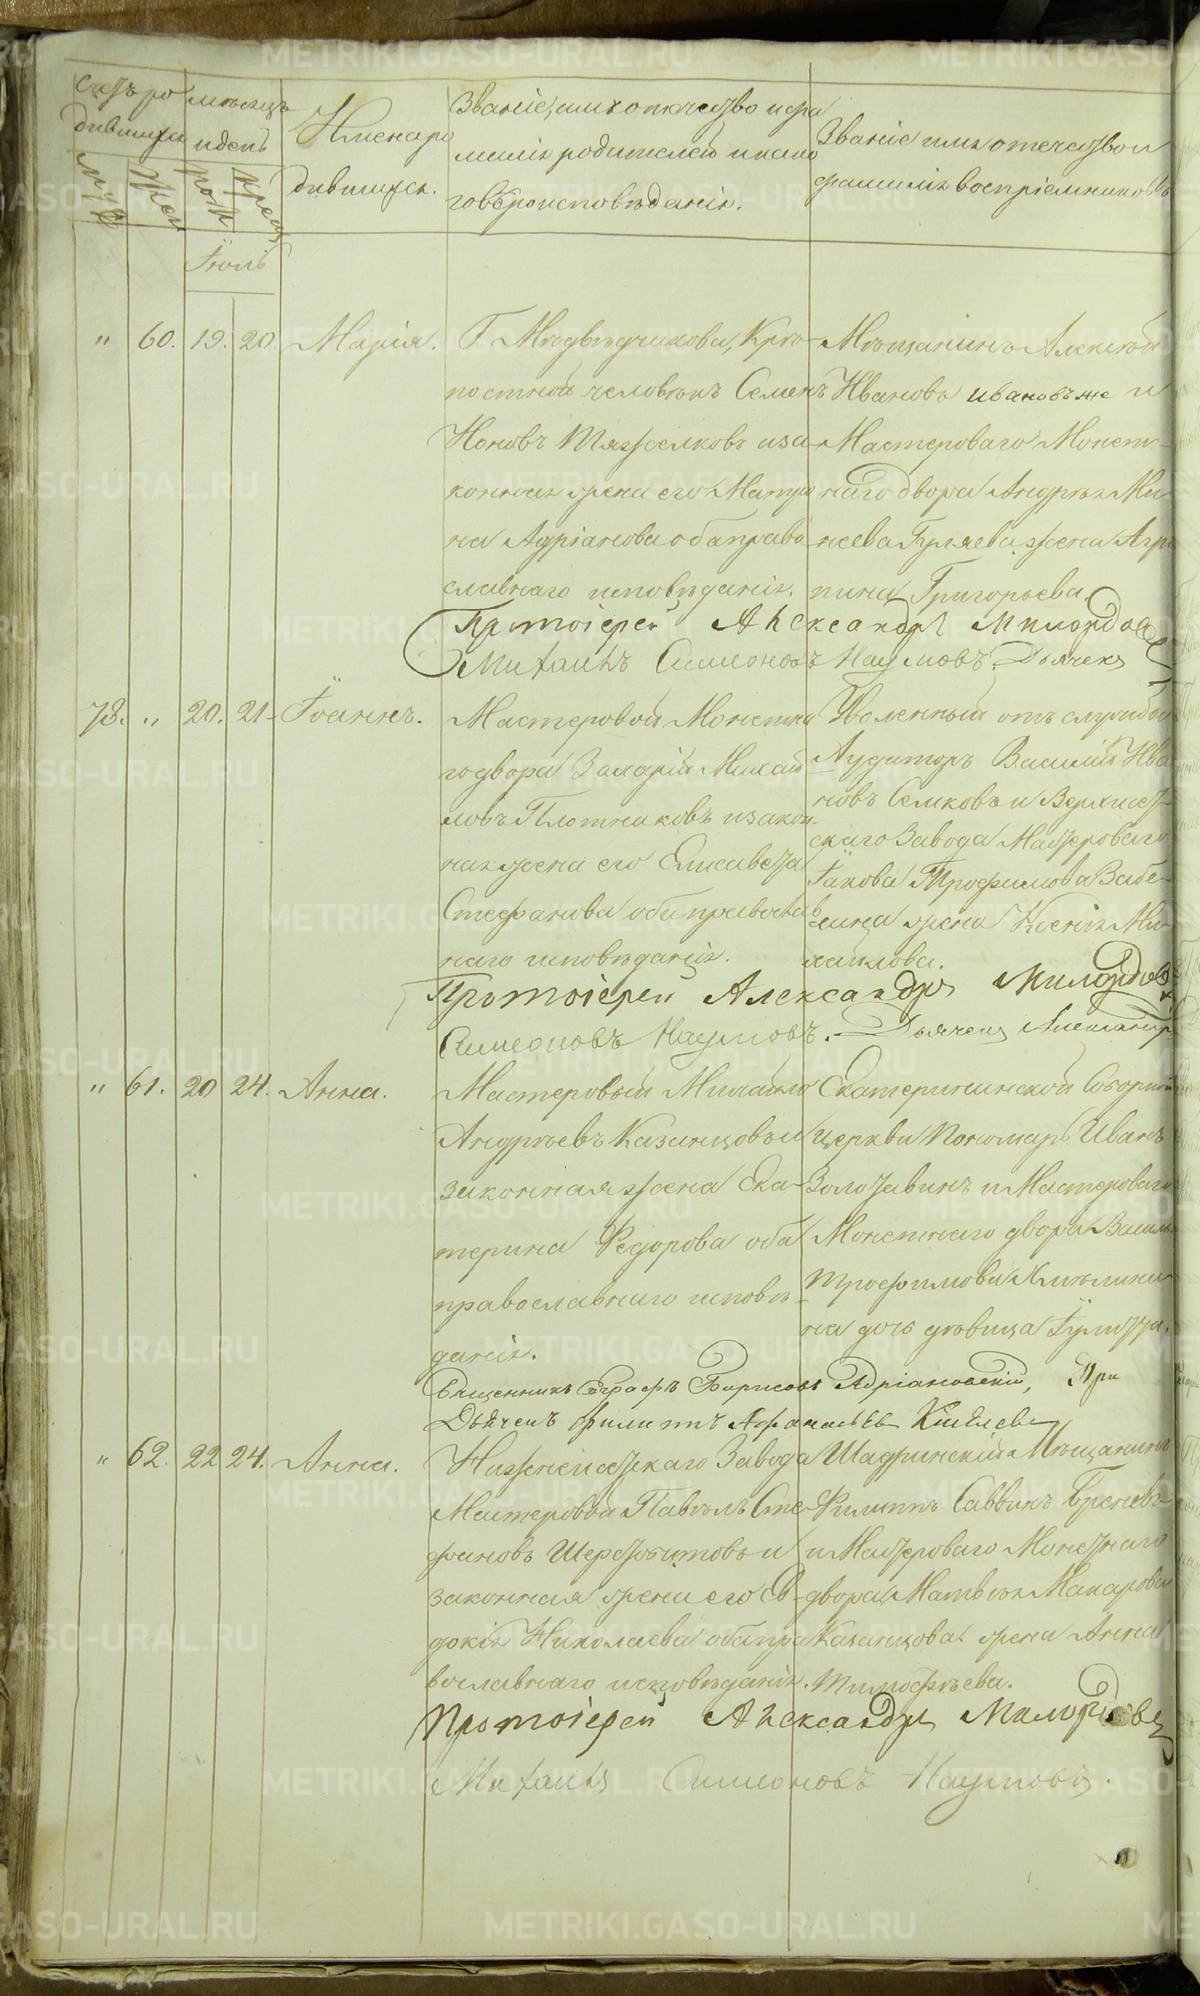 Счетъ ро
дившихся
муж
жен
месяцъ
и день
рож
крещ
Имена ро
дившихся.
Звание, имя отчество и фа
милія родителей и како
го вероисповеданія.
Званіе имя отечество и
фамилія воспріемниковъ
Іюль
" 60. 19. 20. Марія.
Г. Медведчикова, Кре-
постной человекъ Семенъ
Іоновъ Тяжелковъ и за-
конная жена его Матро
на Адріанова оба право
славнаго исповеданія.
Мещанинъ Алексей
Ивановъ Ивановъ же и
Мастероваго Монет-
наго двора Андрея Ми
неева Гуляева жена Агри
пина Григорьева.
Протоіерей Александръ Милордовъ
Михаилъ Симеоновъ Наумовъ. Дьячекъ
73. " 20. 21. Іоаннъ.
Мастеровой Монетна
го двора Захарій Михай
ловъ Плотниковъ и закон-
ная жена его Елисавета
Стефанова оба православ
наго исповеданія.
Уволенный отъ службы
Аудиторъ Василій Ива
новъ Семковъ и Верхисет-
скаго Завода Мастероваго
Іакова Трофимова Забе-
лина жена Ксенія Ми-
хаилова.
Протоіерей Александръ Милордовъ
Симеоновъ Наумовъ. Дьячекъ Александръ
" 61. 20 24. Анна.
Мастеровый Михайло
Андреевъ Казанцовъ и
законная жена Ека-
терина Федорова оба
православнаго испове-
данія.
Екатерининской Соборной
церкви Пономарь Иванъ
Золотавинъ и Мастероваго
Монетнаго двора Василья
Трофимова Хмелини
на дочь девица Іулитта.
Священникъ Евграфъ Борисовъ Адріановскій, При
Дьячекъ Филиппъ Афанасьевъ Киселевъ
" 62. 22 24. Анна.
Нижнеисетскаго Завода
Мастеровой Павелъ Сте-
фановъ Шерстобитовъ и
законная жена его Ев-
докія Николаева оба пра
вославнаго исповеданія.
Шадринский Мещанинъ
Филиппъ Саввинъ
и Мастероваго Монетнаго
двора Матвея Макарова
Казанцова жена Анна
Тимофеева.
Протоіерей Александръ Милордовъ
Михаилъ Симеоновъ Наумовъ.
METRIKI.GASO-URAL.RU